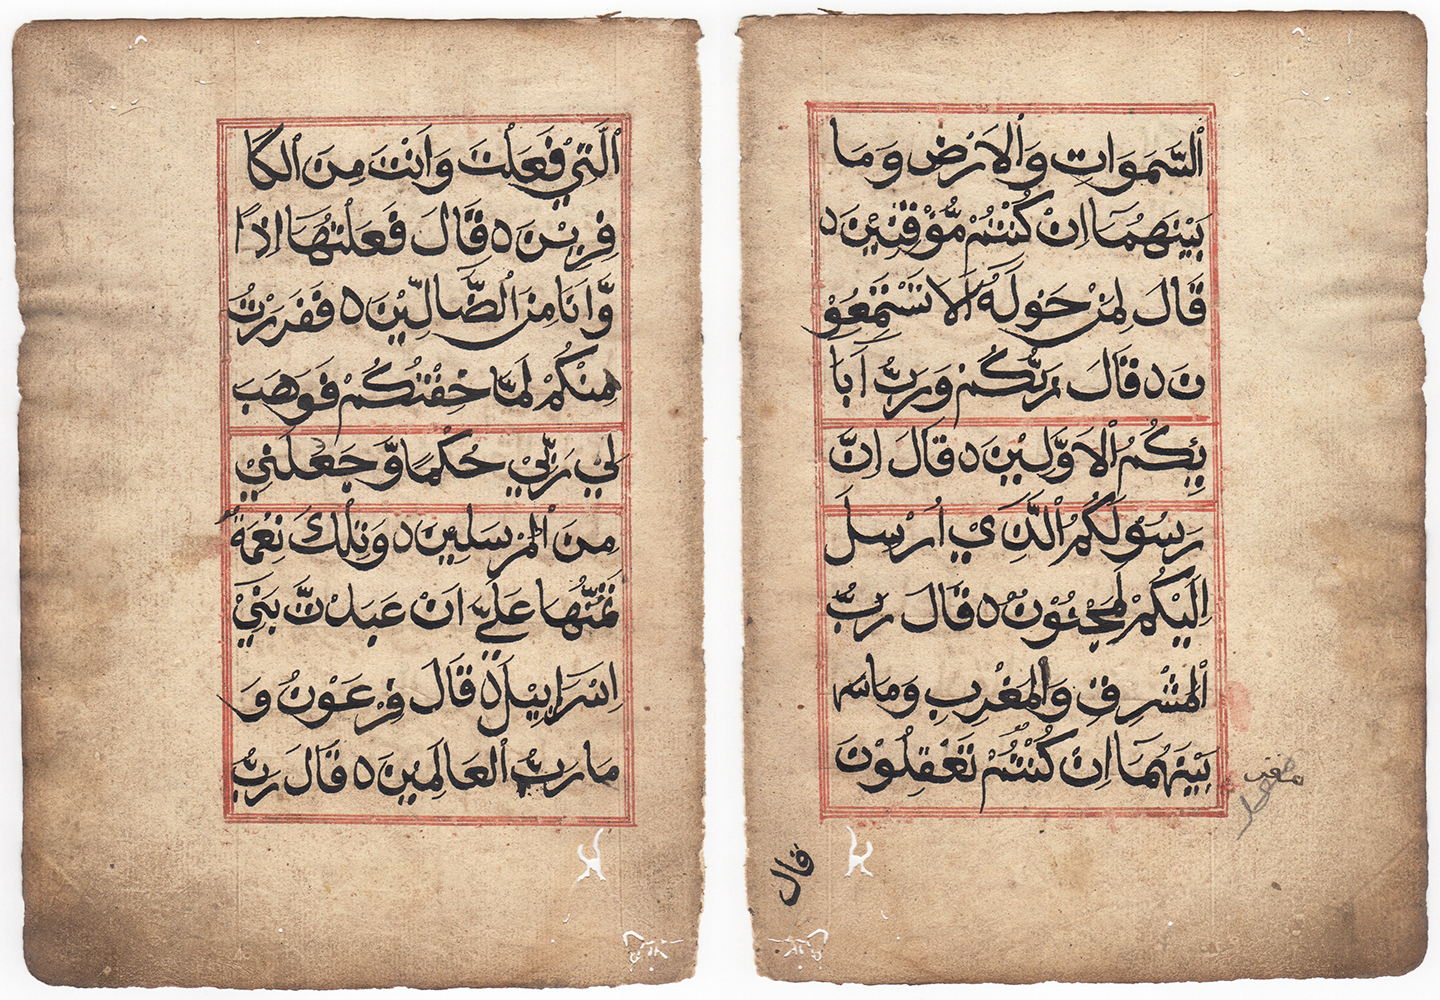 الَّتِيْ فَعَلْتَ وَاَنْتَ مِنَ الكَا
فِرِيْنَ ٥ قَالَ فَعَلْتُهَا اِذًا
وَّاَنَا مِنَ الضَّالِّيْنَ ٥ فَفَرَرْتُ
مِنْكُمْ لَمَّا خِفْتُكُمْ فَوَهَبَ
لِيْ رَبِّيْ حُكْمًا وَّجَعَلَنِيْ
مِنَ المُرْسَلِيْنَ ٥ وَتِلْكَ نِعْمَةٌ
تَمُنُّهَا عَلَيَّ اَنْ عَبَدْتَّ بَنِيْ
اِسْرَايِيْلَ ٥ قَالَ فِرْعَوْنُ وَ
مَا رَبُّ العَالَمِيْنَ ٥ قَالَ رَبُّ
السَّمَوَاتِ وَالاَرْضِ وَمَا
بَيْنَهُمَا اِنْ كُنْتُمْ مُّوْقِنِيْنَ ٥
قَالَ لِمَنْ حَوْلَهُ اَلَا تَسْتَمِعُوْ
نَ ٥ قَالَ رَبُّكُمْ وَرَبُّ اَبَا
ئِكُمُ الاَوَّلِيْنَ ٥ قَالَ اِنَّ
رَسُوْلَكُمُ الَّذِيْ اُرْسِلَ
اِلَيْكُمْ لَمَجْنُوْنٌ ٥ قَالَ رَبُّ
المَشْرِقِ وَالمَغْرِبِ وَمَا
بَيْنَهُمَا اِنْ كُنْتُمْ تَعْقِلُوْنَ
قال